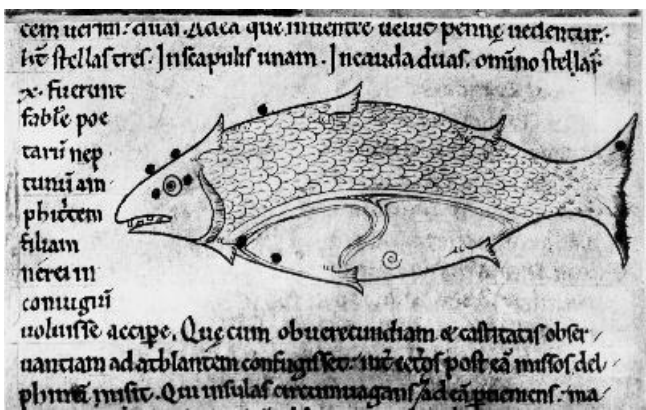 cem uerim? duaı. Adea que inuentre ueluc penne uedentur.
hr̄ stellas tres. Inscapulis unam. Incauda duas. omino stellar̄
x. fuerunt
fable poe
tarū nep
tunū am
phitritem
filiam
nerei in
coniugiū
uoluisse accipe. Que cum obuerecundiam & castitatis obser
uantiam ad athlantem confugisset. post eā missos del
phinū misit. Qui insulas circumuagans ad eā ꝑueniens. ma